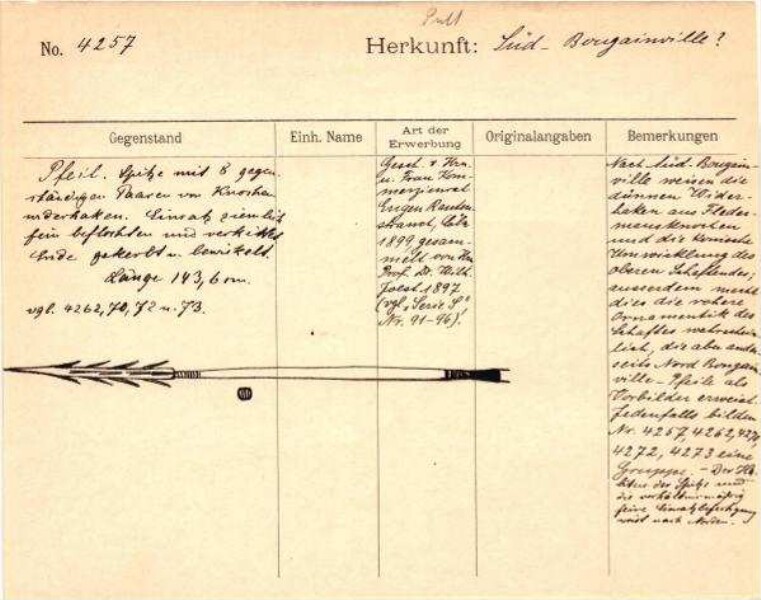 Pult
No. 4257
Herkunft: Süd- Bougainville?
Gegenstand
Einh. Name
Art der
Erwerbung
Originalangaben
Bemerkungen
Pfeil. Spitze mit 8 gegen-
ständigen Paaren von Knochen-
widerhaken. Einsatz ziemlich
fein beflochten und verkittet
Ende gekerbt u. bewickelt.
Länge 143,6 cm.
vgl. 4262, 70, 72 u. 73.
Gesch. v. Hrn.
u. Frau Kom-
merzienrat
Eugen Rauten-
strauch, Cöln
1899, gesam-
melt von Hn
Prof. Dr. Wilh.
Joest 1897
(vgl. „Serie S"
Nr. 91-96)!
Nach Süd-Bougain-
ville weisen die
dünnen Wider-
haken aus Fleder-
mausknochen
und die konische
Umwicklung des
oberen Schaftendes;
ausserdem macht
dies die rohere
Ornamentik des
Schaftes wahrschein-
lich, die aber ander-
seits Nord Bougain-
ville-Pfeile als
Vorbilder erweist.
Jedenfalls bilden
Nr. 4257, 4262, 4270,
4272, 4273 eine
Gruppe. - Der Ha-
bitus der Spitze und
die verhältnismäßig
feine Einsatzbefestigung
weist nach Norden.